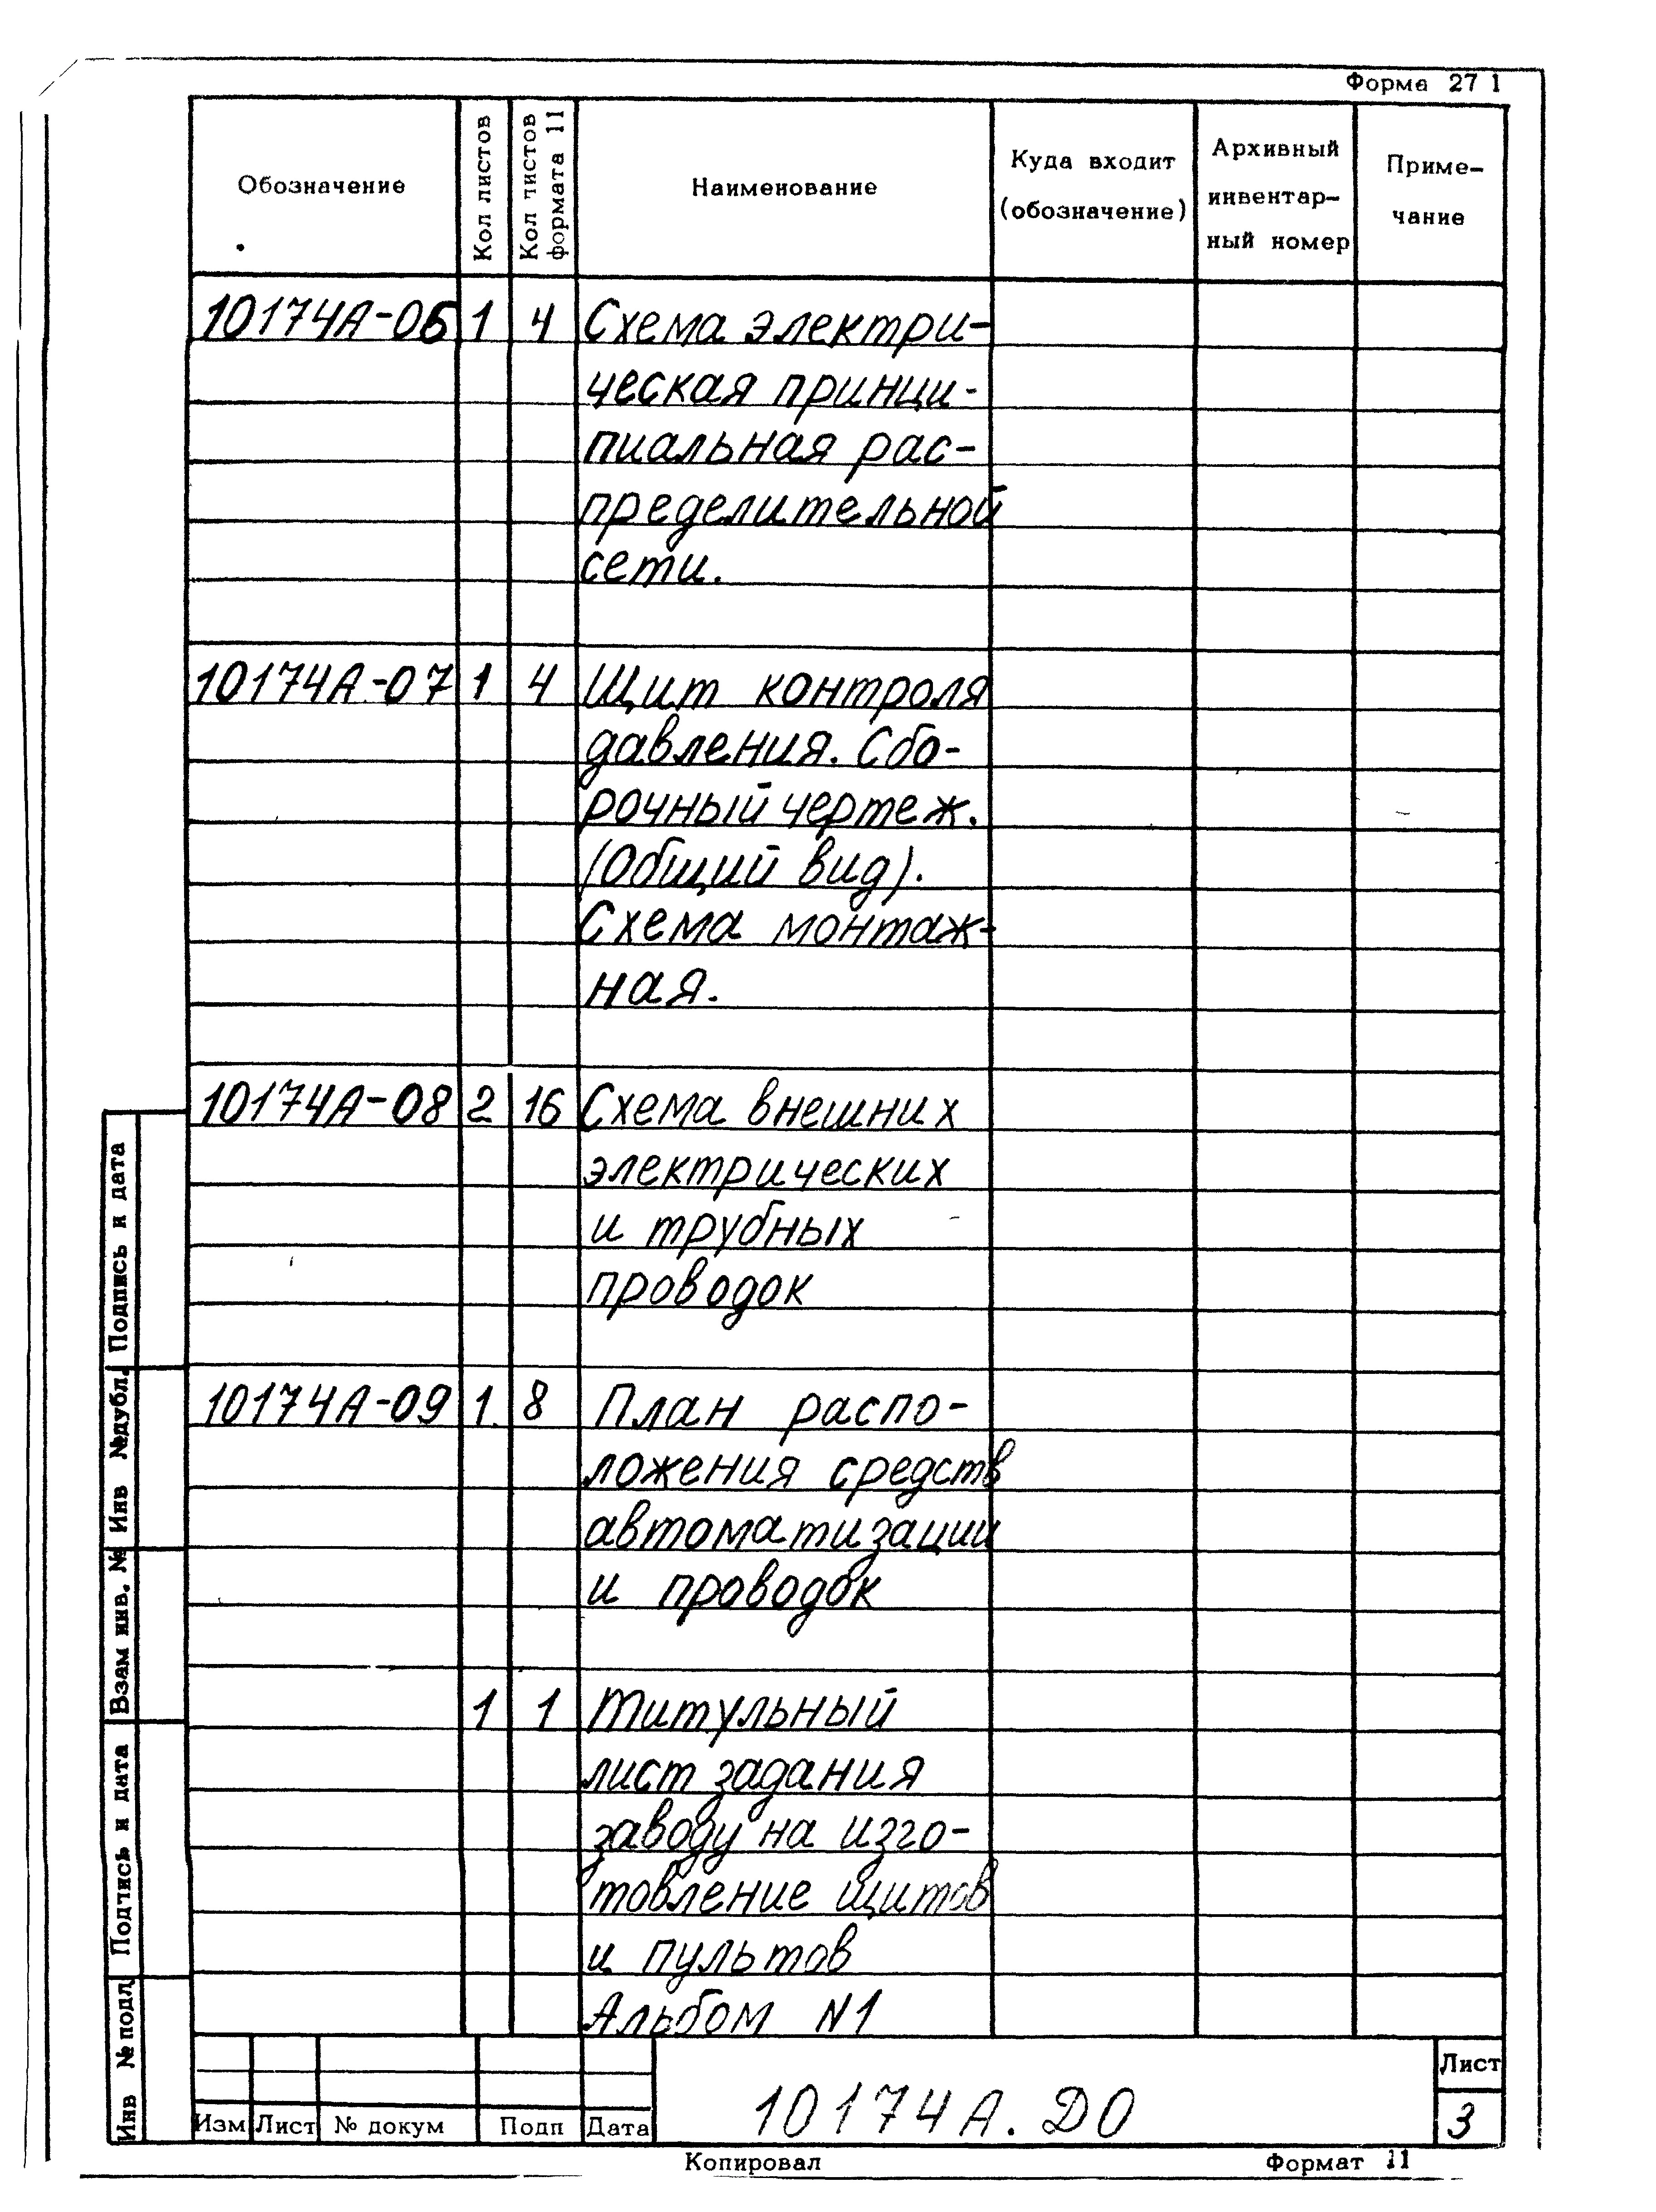 Форма 27 1
Обозначение
Кол листов
Кол листов
формата 11
Наименование
Куда входит
(обозначение)
Архивный
инвентар-
ный номер
Приме-
чание
10174А-06 1 4 Схема электри-
ческая принци-
пиальная рас-
пределительной
сети.
10174А-07 1 4 Щит контроля
давления. Сбо-
рочный чертеж.
(Общий вид).
Схема монтаж-
ная.
10174А-08 2 16 Схема внешних
электрических
и трубных
проводок
10174А-09 1 8 План распо-
ложения средств
автоматизации
и проводок
1 1 Титульный
лист задания
заводу на изго-
товление щитов
и пультов
Альбом N1
Подпись и дата
Инв №дубл.
Взам инв. №
Подпись и дата
Инв № подл
Изм Лист № докум Подп Дата
10174А. ДО
Лист
3
Копировал Формат 11